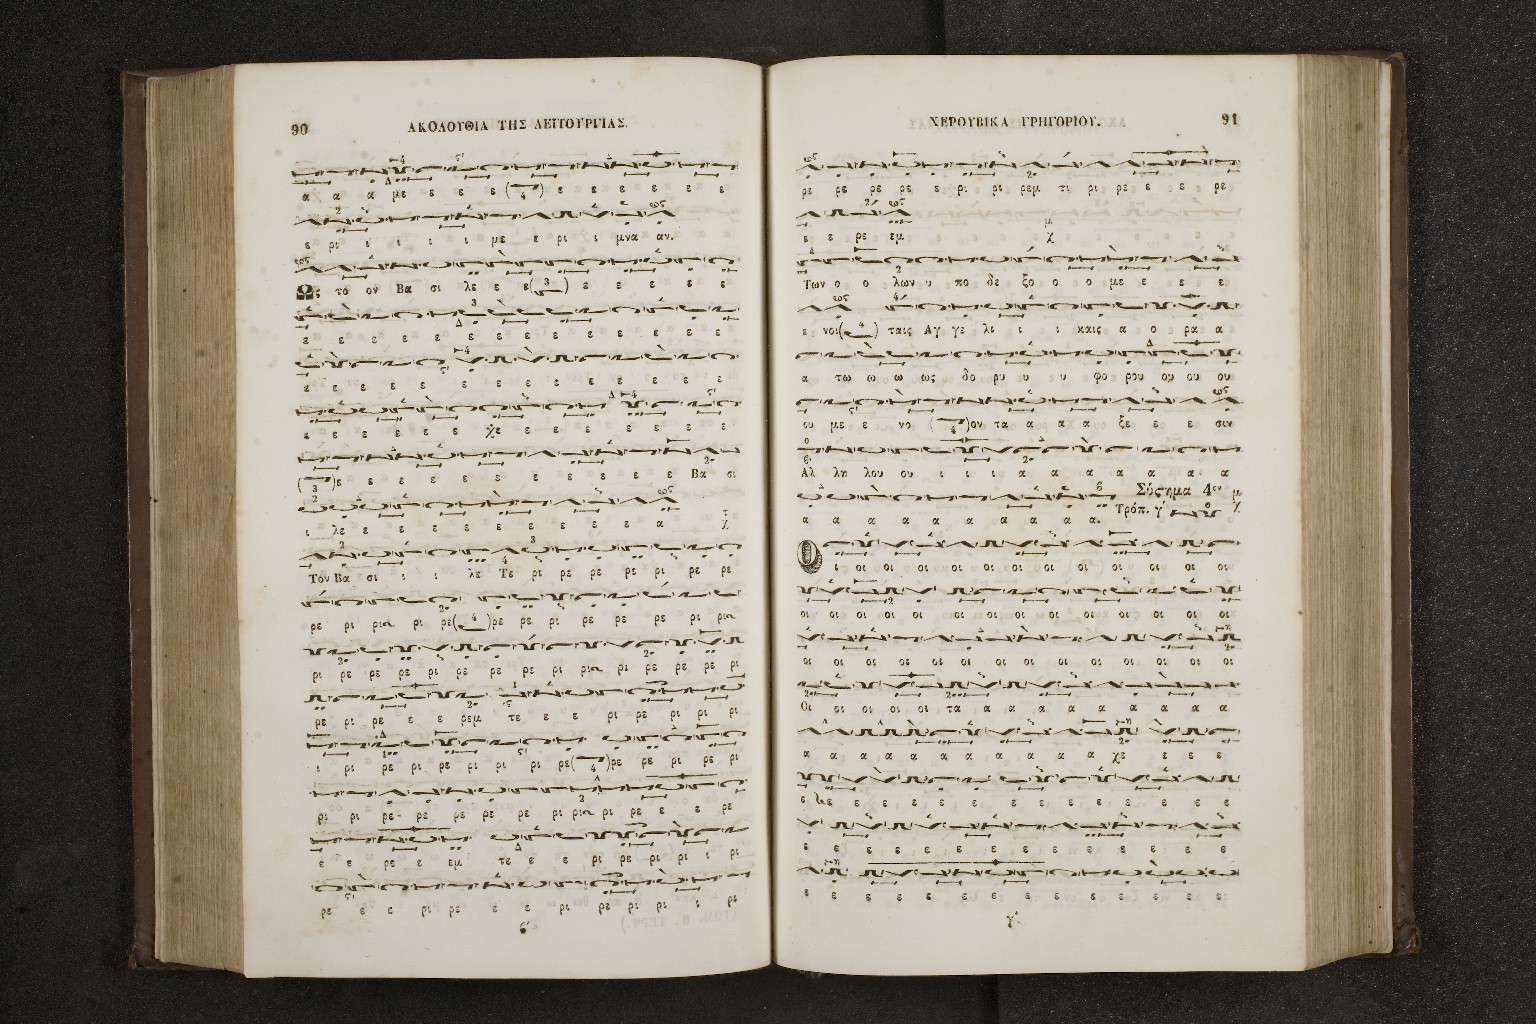 90
ΑΚΟΛΟΥΘΙΑ ΤΗΣ ΛΕΙΤΟΥΡΓΙΑΣ.
α α α με ε ε ε (4) ε ε ε ε ε ε
ε ρι ι ι ι ι με ε ρι ι μνα αν.
Ως το ον Βα σι λε ε ε(3) ε ε ε ε ε
ε ε ε ε ε ε ε ε ε ε ε ε ε ε
ε ε ε ε ε ε ε ε ε ε ε ε ε
ε ε ε ε ε ε χε ε ε ε ε ε ε ε
(3)ε ε ε ε ε ε ε ε ε ε ε ε Βα σι
ι λε ε ε ε ε ε ε ε ε ε α
Τον Βα σι ι ι λε Τε ρι ρε ρε ρε ρι ρε ρε
ρε ρι ριμ ρι ρε(4)ρε ρε ρι ρε ρε ρε ρι ριμ
ρι ρε ρε ρε ρι ρε ρε ρε ρι ριμ ρι ρε ρε ρε ρι
ρε ρι ρε ε ε ρεμ τε ε ε ρι ρε ρι ρι ρι
ι ρι ρε ρι ρε ρι ρι ρι ρε(4)ρε ρε ρι ρε ρι
ρι ρι ρε ρε ρε ρε ρε ρι ριμ ρι ρε ε ε ρε
ε ε ρε ε εμ τε ε ε ρι ρε ρι ρι ι ρι
ρε ε ε ρι ρε ε ε ρι ρε ρι ρι ι ρι
ΧΕΡΟΥΒΙΚΑ ΓΡΗΓΟΡΙΟΥ.
91
ρε ρε ρε ρε ε ρι ρι ρεμ τι ρι ρε ε ε ε ρε
ε ε ρε εμ
Των ο ο λων υ πο δε ξο ο ο με ε ε ε
ε νοι(4) ταις Αγ γε λι ι ι καις α ο ρα α
α τω ω ω ως δο ρυ υ υ φο ρου ου ου ου
ου με ε νο (4)ον τα α α α ξε ε ε σιν
Αλ λη λου ου ι ι ι α α α α α α α
α α α α α α α α α α. Τρόπ. γ΄
Σύςημα 4ον
Ο ι οι οι οι οι οι οι οι οι οι οι οι οι
οι οι οι οι οι οι οι οι οι οι οι οι οι
οι οι οι οι οι οι οι οι οι οι οι οι οι οι
Οι οι οι οι οι τα α α α α α α α α α
α α α α α α α α α α α χε ε ε ε
ε ε ε ε ε ε ε ε ε ε ε ε ε
ε ε ε ε ε ε ε ε ε ε ε ε ε ε
ε ε ε ε ε ε ε ε ε ε ε ε ε ε
γ΄.